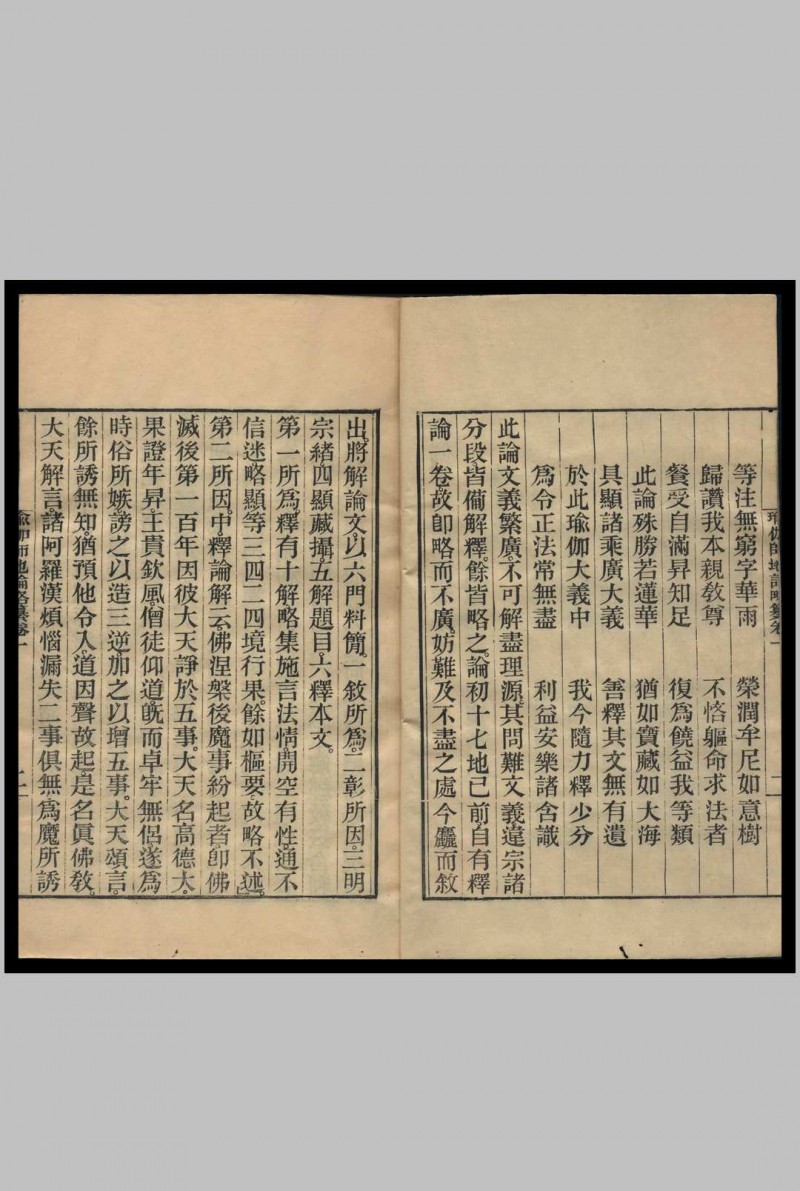 瑜伽師地論略纂卷一 二
等注無窮字華雨 榮潤牟尼如意樹
歸讚我本親教尊 不恡軀命求法者
餐受自滿昇知足 復為饒益我等類
此論殊勝若蓮華 猶如寶藏如大海
具顯諸乘廣大義 善釋其文無有遺
於此瑜伽大義中 我今隨力釋少分
為令正法常無盡 利益安樂諸含識
此論文義繁廣。不可解盡理源。其問難文義違宗諸
分段皆備解釋。餘皆略之。論初十七地已前自有釋
論一卷。故卽略而不廣。妨難及不盡之處今麤而敘
出。將解論文。以六門料簡。一敘所為。二彰所因。三明
宗緒。四顯藏攝。五解題目。六釋本文。
第一所為。釋有十解。略集施言法情開空有性通不
信迷略顯等三四二四境行果。餘如樞要。故略不述。
第二所因。中釋論解云。佛涅槃後魔事紛起者。卽佛
滅後第一百年因彼大天諍於五事。大天名高德大。
果證年昇。王貴欽風。僧徒仰道。旣而卓牢無侶。遂為
時俗所嫉。謗之以造三逆。加之以增五事。大天頌言。
餘所誘無知。猶預他令入。道因聲故起。是名眞佛教。
大天解言。諸阿羅漢煩惱漏失二事俱無。為魔所誘
瑜伽師地論略纂卷一 二